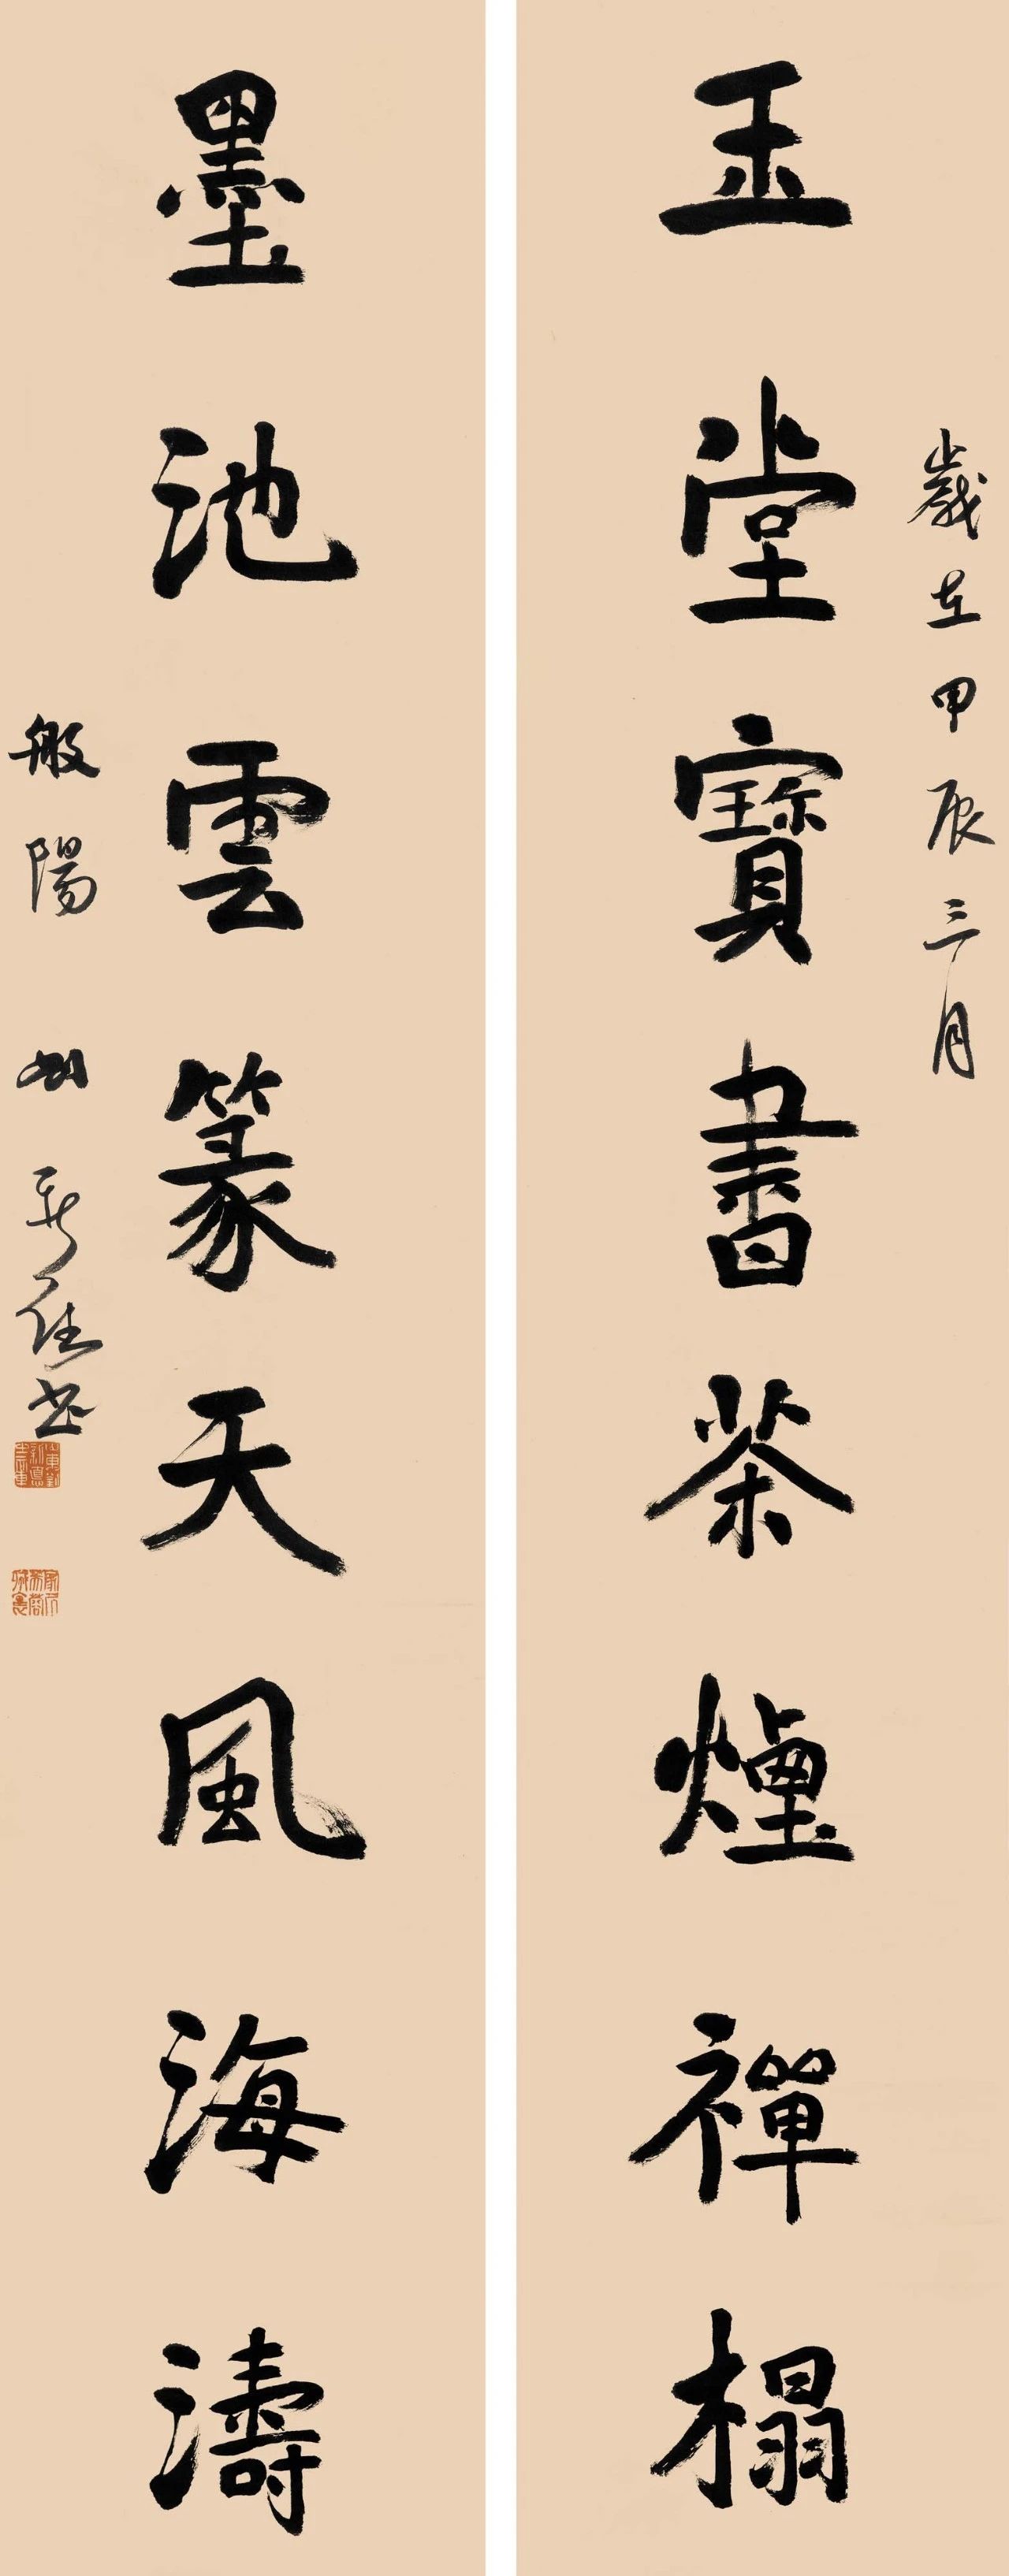 歲在甲辰三月
玉堂寶書茶煙禪榻
墨池雲篆天風海濤
般陽 劉新德書